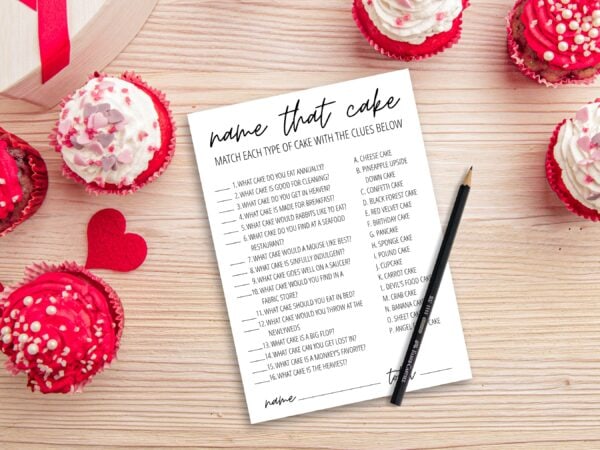 name that cake
MATCH EACH TYPE OF CAKE WITH THE CLUES BELOW
1. WHAT CAKE DO YOU EAT ANNUALLY?
2. WHAT CAKE IS GOOD FOR CLEANING?
3. WHAT CAKE DO YOU GET IN HEAVEN?
4. WHAT CAKE IS MADE FOR BREAKFAST?
5. WHAT CAKE WOULD RABBITS LIKE TO EAT?
6. WHAT CAKE DO YOU FIND AT A SEAFOOD
RESTAURANT?
7. WHAT CAKE WOULD A MOUSE LIKE BEST?
8. WHAT CAKE IS SINFULLY INDULGENT?
9. WHAT CAKE GOES WELL ON A SAUCER?
10. WHAT CAKE WOULD YOU FIND IN A
FABRIC STORE?
11. WHAT CAKE SHOULD YOU EAT IN BED?
12. WHAT CAKE WOULD YOU THROW AT THE
NEWLYWEDS
13. WHAT CAKE IS A BIG FLOP?
14. WHAT CAKE CAN YOU GET LOST IN?
15. WHAT CAKE IS A MONKEY'S FAVORITE?
16. WHAT CAKE IS THE HEAVIEST?
A. CHEESE CAKE
B. PINEAPPLE UPSIDE
DOWN CAKE
C. CONFETTI CAKE
D. BLACK FOREST CAKE
E. RED VELVET CAKE
F. BIRTHDAY CAKE
G. PANCAKE
H. SPONGE CAKE
I. POUND CAKE
J. CUPCAKE
K. CARROT CAKE
L. DEVIL'S FOOD CAKE
M. CRAB CAKE
N. BANANA CAKE
O. SHEET CAKE
P. ANGEL CAKE
name